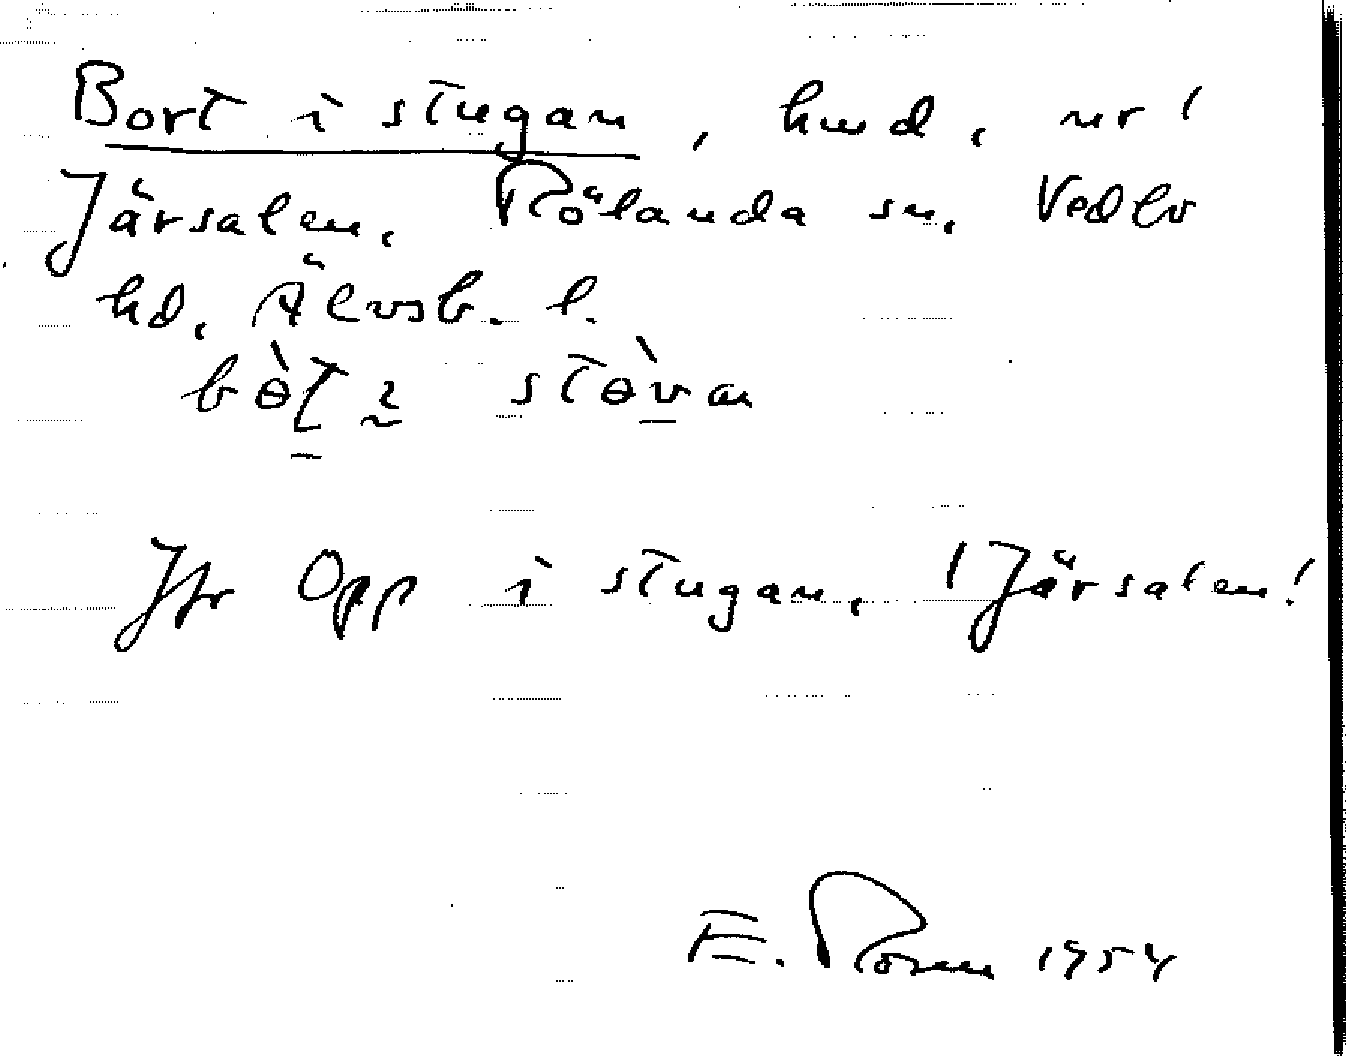 Bort i stugan, hmd, nr 1
Järsalen, Rölanda sn, Vedbo
hd, Älvsb. l.
stòvan
Jfr Opp i stugan, 1 Järsalen!
E. Rosén 1954